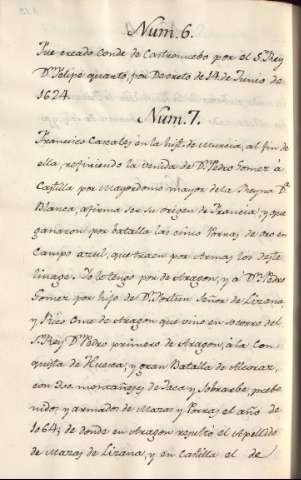 Num. 6.
Fue creado Conde de Castronuebo por el S.r Rey
D.n Felipe quarto, por Decreto de 14 de Junio de
1624.
Num. 7.
Francisco Cascales en la hist. de Murcia, al fin de
ella, refiriendo la venida de D.n Pedro Gomez à
Castilla por Mayordomo mayor de la Reyna D.a
Blanca, afirma ser su origen de Francia, y que
ganaron por batalla las cinco Porras de oro en
campo azul, que traen por Armas los deste
linage. Yo lo tengo por de Aragon, y à D.n Pedro
Gomez por hijo de D.n Fortun Señor de Lizana,
y Rico Ome de Aragon que vino en socorro del
S.r Rey D.n Pedro primero de Aragon, à la Con
quista de Huesca, y gran Batalla de Alcoraz,
con 300 montañeses de Jaca y Sobrarbe, prebe
nidos, y armados de Mazas y Porras el año de
1064; de donde en Aragon resultò el Apellido
de Mazas de Lizana, y en Castilla el de